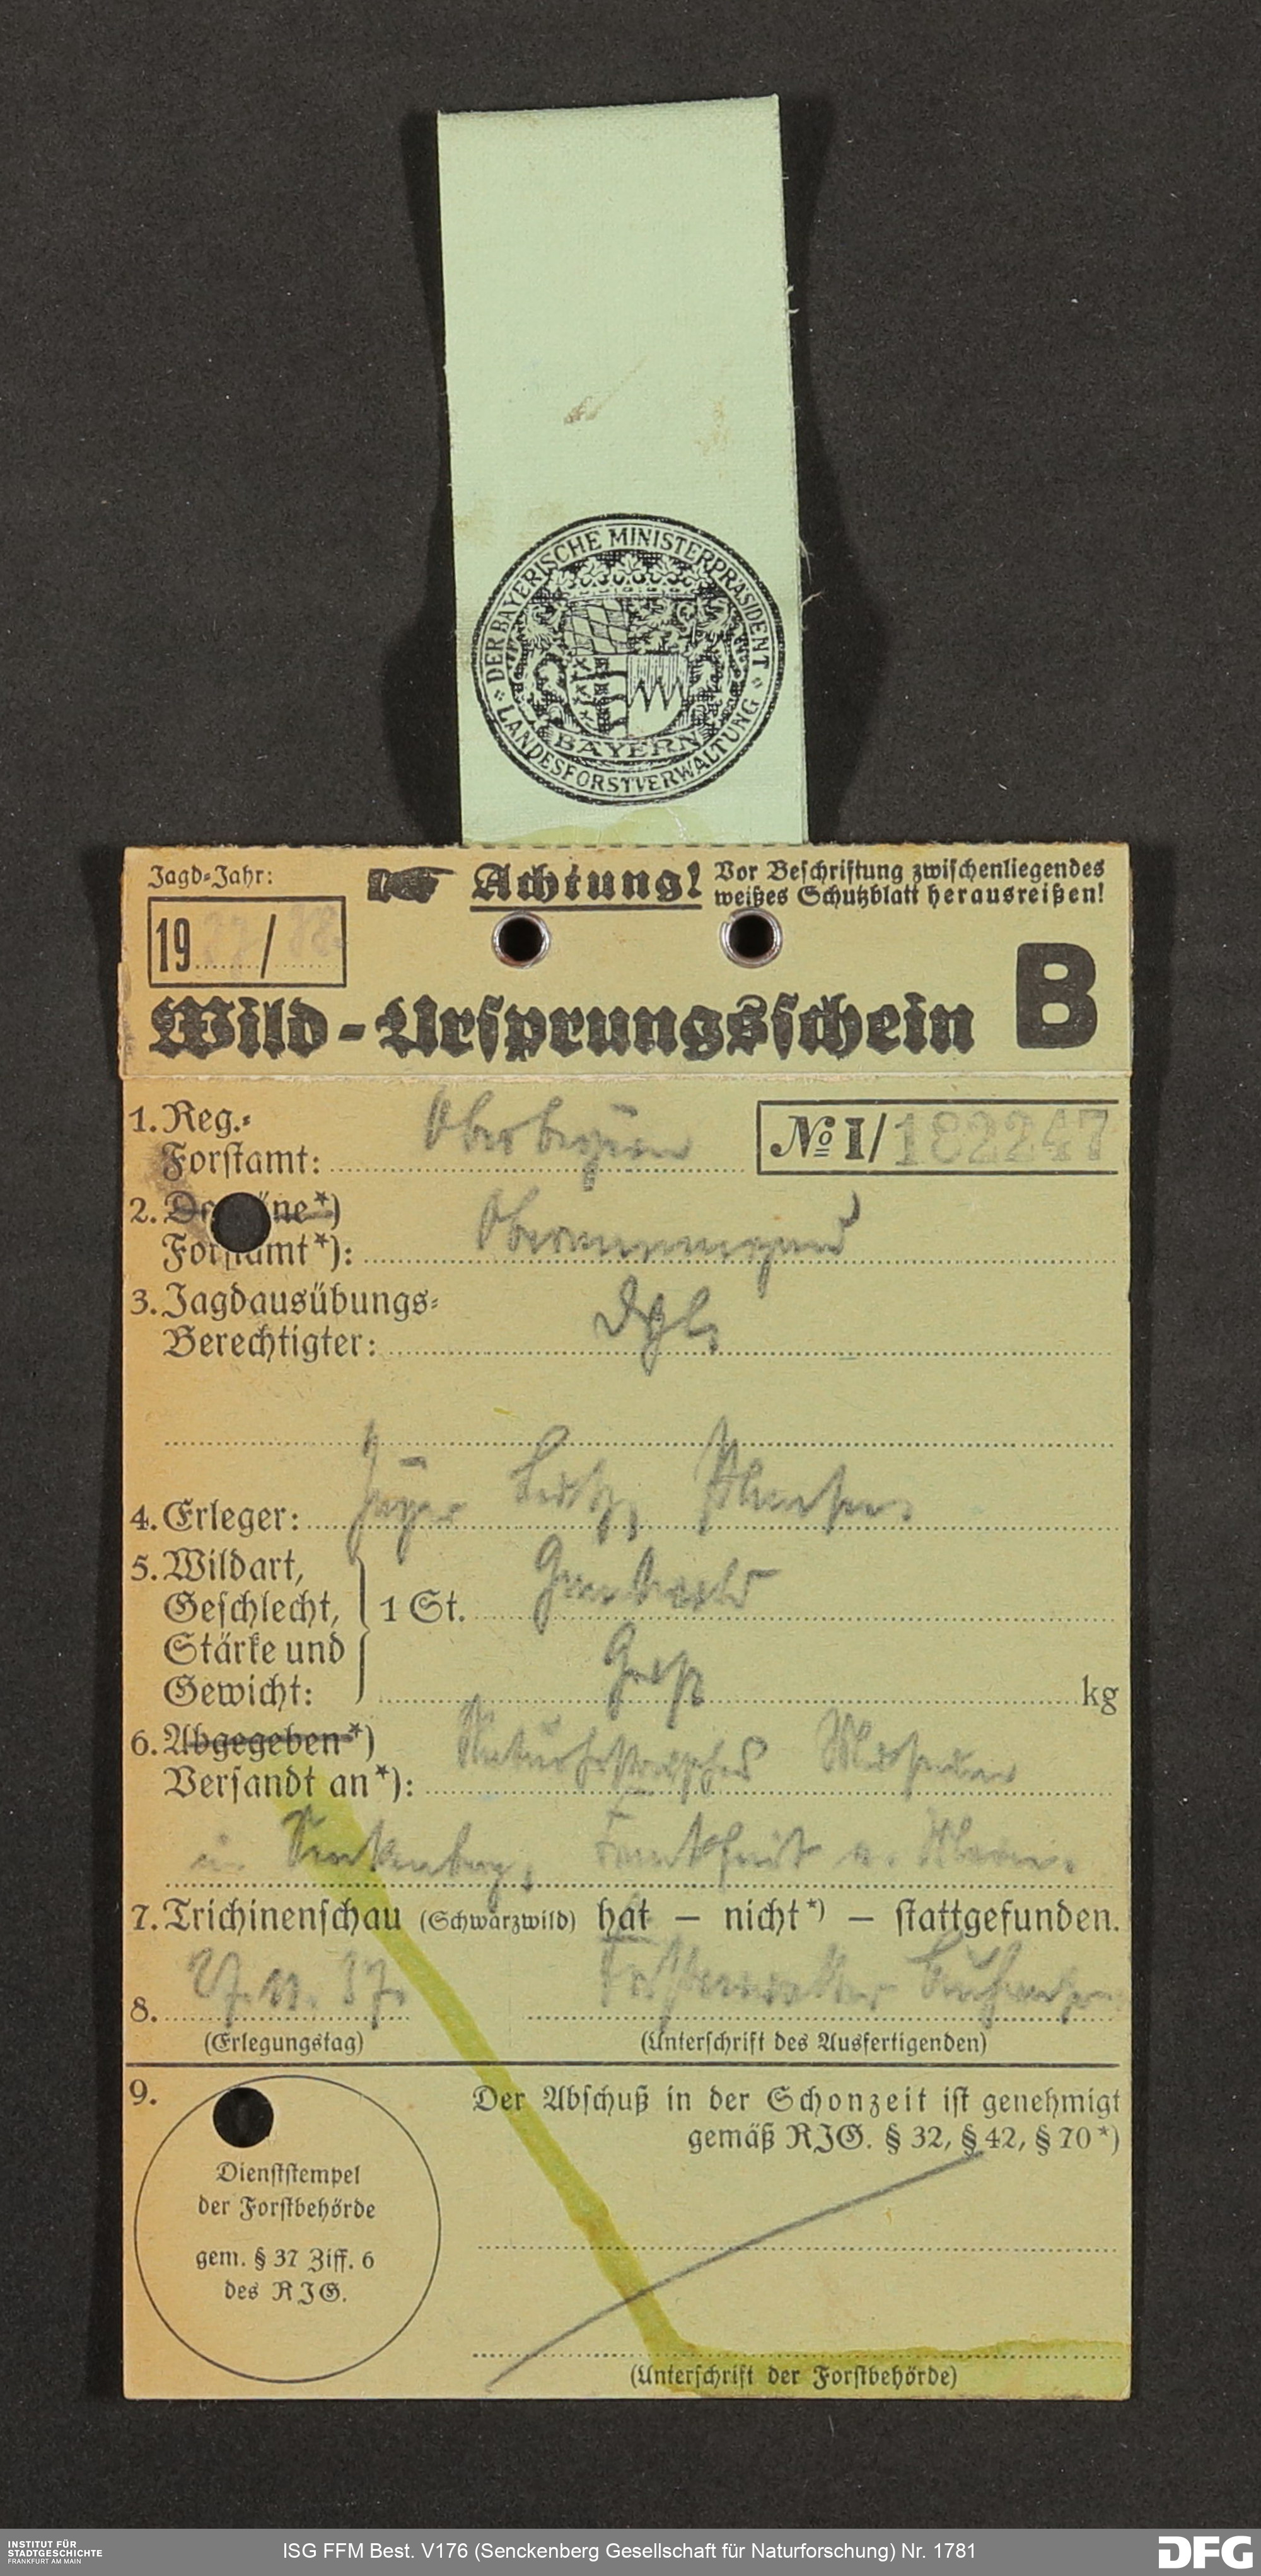 DER BAYERISCHE MINISTERPRÄSIDENT
LANDESFORSTVERWALTUNG
BAYERN
Jagd-Jahr:
Achtung! Vor Beschriftung zwischenliegendes
weißes Schutzblatt herausreißen!
1937/38
Wild-Ursprungsschein B
1. Reg.-
Forstamt: Oberbayern
№ I/182247
2. Domäne*)
Forstamt*): Oberammergau
3. Jagdausübungs-
Berechtigter: Dgl.
4. Erleger: Jäger
5. Wildart,
Geschlecht, 1 St. Gamsbock
Stärke und
Gewicht: kg
6. Abgegeben*)
Versandt an*): Naturhistorisches Museum
Senkenberg, Frankfurt a. Main.
7. Trichinenschau (Schwarzwild) hat – nicht*) – stattgefunden.
8. 27.11.37. Forstverwalter
(Erlegungstag) (Unterschrift des Ausfertigenden)
9.
Der Abschuß in der Schonzeit ist genehmigt
gemäß RJG. § 32, § 42, § 70*)
Dienststempel
der Forstbehörde
gem. § 37 Ziff. 6
des RJG.
(Unterschrift der Forstbehörde)
INSTITUT FÜR
STADTGESCHICHTE
FRANKFURT AM MAIN
ISG FFM Best. V176 (Senckenberg Gesellschaft für Naturforschung) Nr. 1781
DFG